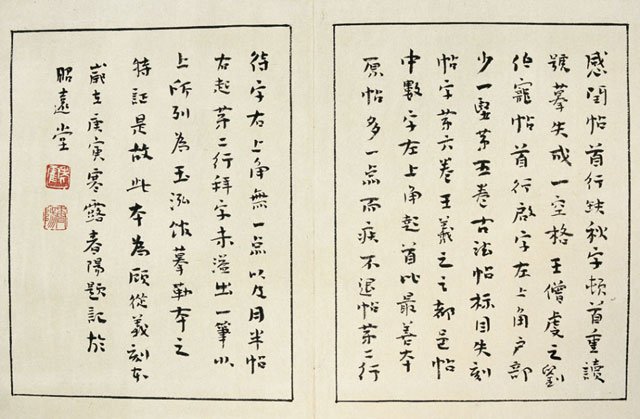 感閏帖首行缺秋字頓首重讀
號摹失成一空格王僧虔之劉
伯寵帖首行啟字左上角戶部
少一竪第五卷古法帖標目失刻
帖字第六卷王羲之之都邑帖
中數字左上角起首比最善本
原帖多一点而疾不退帖第二行
待字右上角無一点以及月半帖
右起第二行拜字未溢出一筆以
上所列為玉泓館摹勒本之
特証是故此本為顧從義刻本
歲在庚寅寒露春陽題記於
昭遠堂